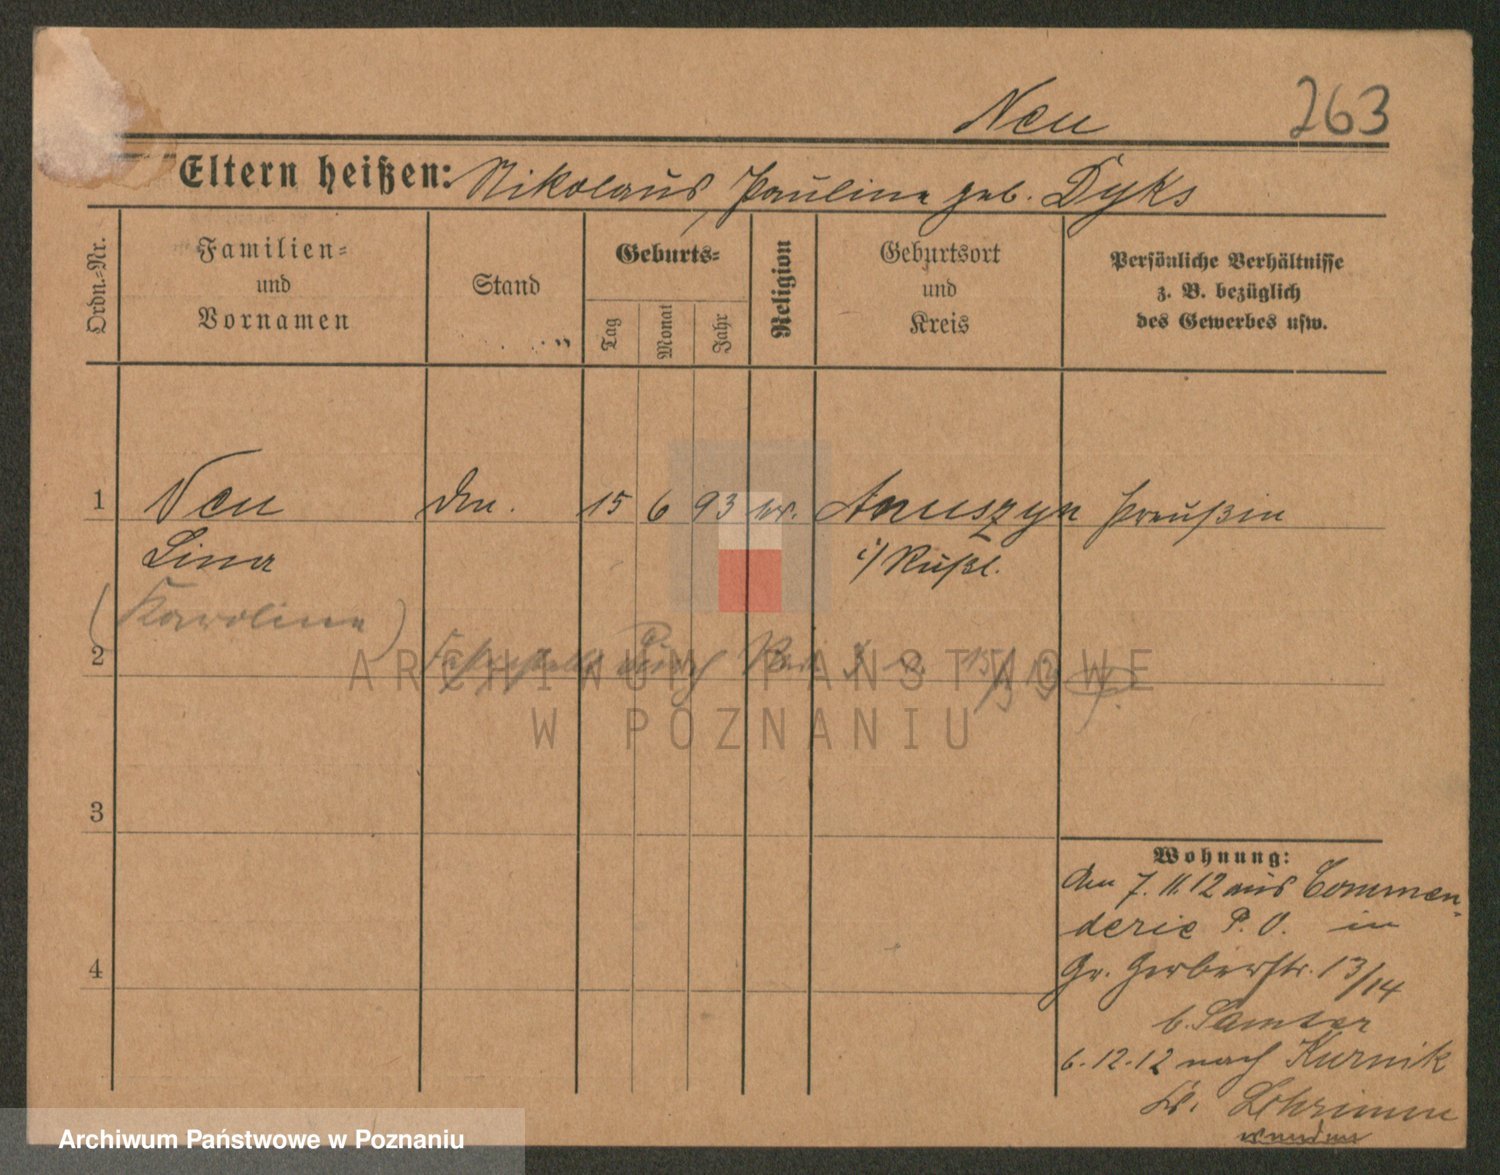 Neu 263
Eltern heißen: Nikolaus, Pauline geb. Dyks
Ordn.-Nr.
Familien-
und
Vornamen
Stand
Geburts-
Tag
Monat
Jahr
Religion
Geburtsort
und
Kreis
Persönliche Verhältnisse
z. B. bezüglich
des Gewerbes usw.
1 Neu 15 6 93 ev. Anuszyn Preußin
Lina i/Rußl.
(Karoline)
2 Festgestellt durch
3
4
Wohnung:
den 7.11.12 aus Commen-
derie P. O. in
Gr. Gerberstr. 13/14
b. Samter
6.12.12 nach Kurnik
ARCHIWUM PAŃSTWOWE
W POZNANIU
Archiwum Państwowe w Poznaniu